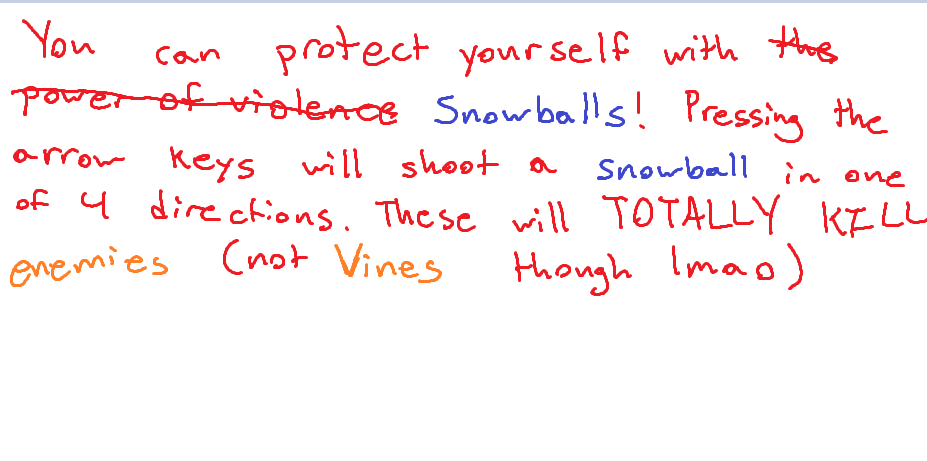 You can protect yourself with the
power of violence Snowballs! Pressing the
arrow keys will shoot a snowball in one
of 4 directions. These will TOTALLY KILL
enemies (not Vines though lmao)